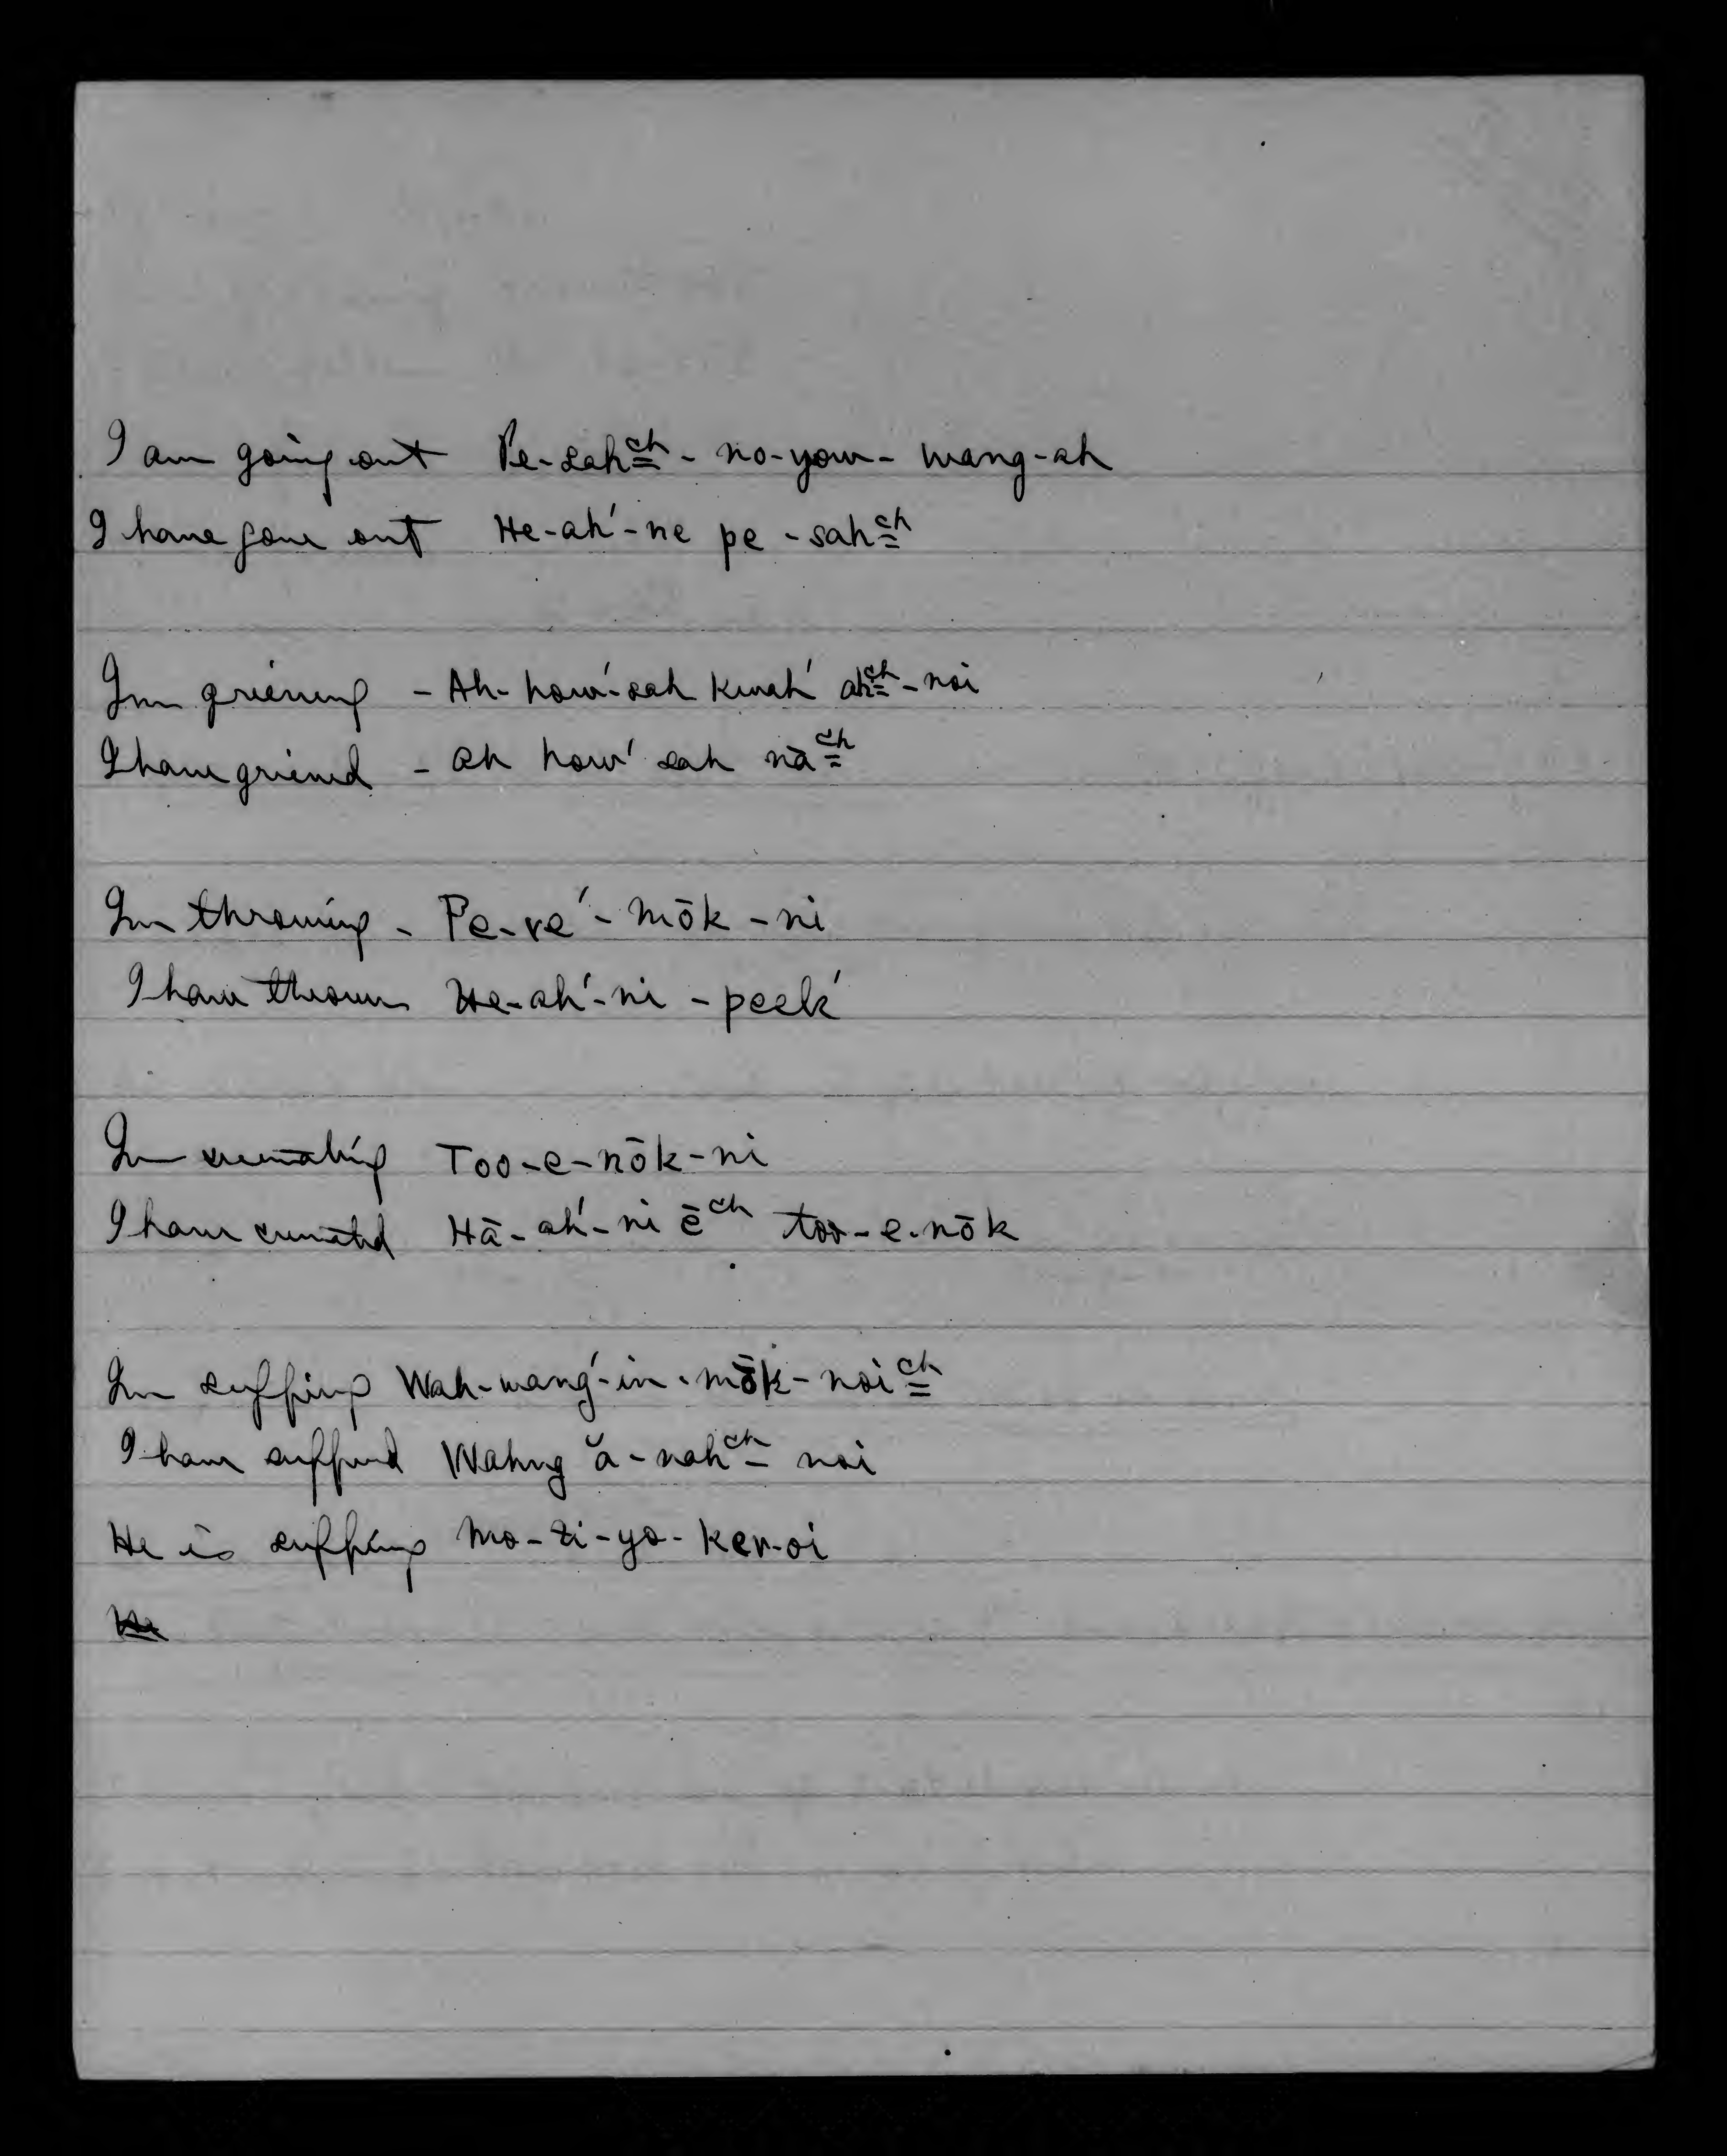 I am going out Pe-sahᶜʰ - no-yow- wang-ah
I have gone out He-ah'-ne pe-sahᶜʰ
I'm grieving - Ah-how'-sah kwah' ahᶜʰ-noi
I have grieved - ah how' sah nāᶜʰ
I'm throwing - Pe-re'-mōk-ni
I have thrown He-ah'-ni-peek'
I'm cremating Too-e-nōk-ni
I have cremated Hā-ah'-ni ēᶜʰ too-e-nōk
I'm suffering Wah-wang'-in-mōk-noiᶜʰ
I have suffered Wahng ă-nahᶜʰ- noi
He is suffering Mo-zi-yo-ker-oi